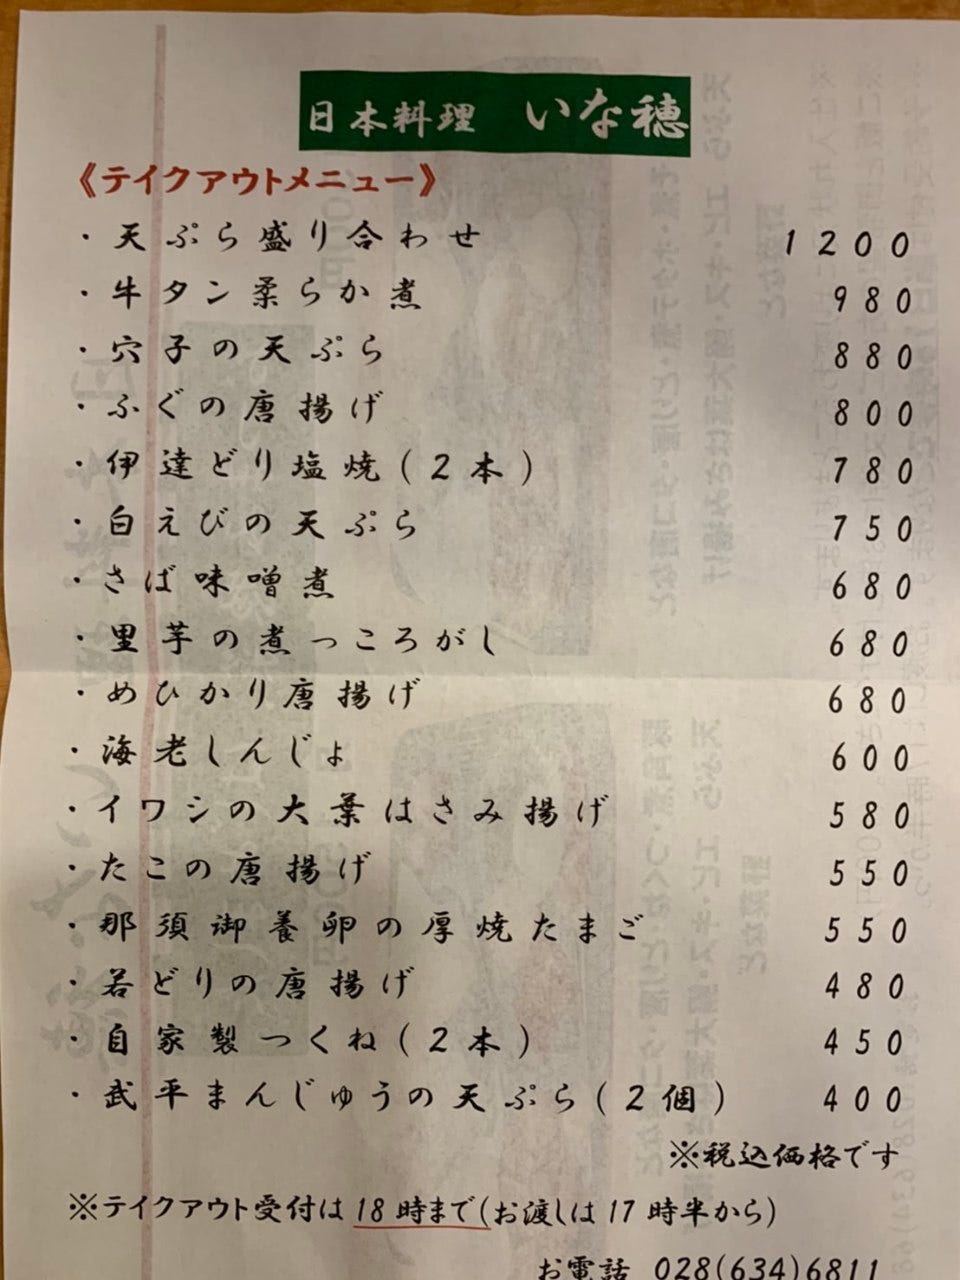 日本料理 いな穂
《テイクアウトメニュー》
・天ぷら盛り合わせ 1200
・牛タン柔らか煮 980
・穴子の天ぷら 880
・ふぐの唐揚げ 800
・伊達どり塩焼(2本) 780
・白えびの天ぷら 750
・さば味噌煮 680
・里芋の煮っころがし 680
・めひかり唐揚げ 680
・海老しんじょ 600
・イワシの大葉はさみ揚げ 580
・たこの唐揚げ 550
・那須御養卵の厚焼たまご 550
・若どりの唐揚げ 480
・自家製つくね(2本) 450
・武平まんじゅうの天ぷら(2個) 400
※税込価格です
※テイクアウト受付は18時まで(お渡しは17時半から)
お電話 028(634)6811